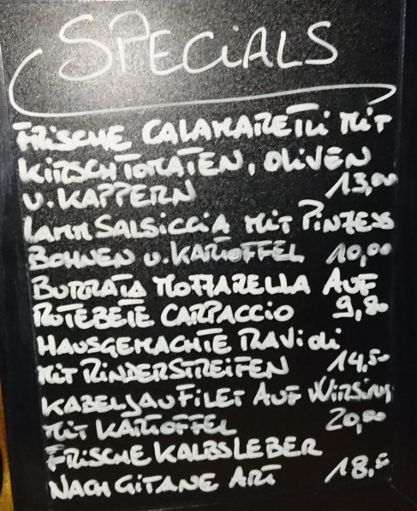 SPECIALS
FRISCHE CALAMARETTI MIT
KIRSCHTOMATEN, OLIVEN
U. KAPPERN 13,00
LAMM SALSICCIA MIT PINZESS
BOHNEN U. KARTOFFEL 10,00
BURRATA MOZZARELLA AUF
ROTEBETE CARPACCIO 9,80
HAUSGEMACHTE RAVIOLI
MIT RINDERSTREIFEN 14,50
KABELJAUFILET AUF WIRSING
MIT KARTOFFEL 20,00
FRISCHE KALBSLEBER
NACH GITANE ART 18,5